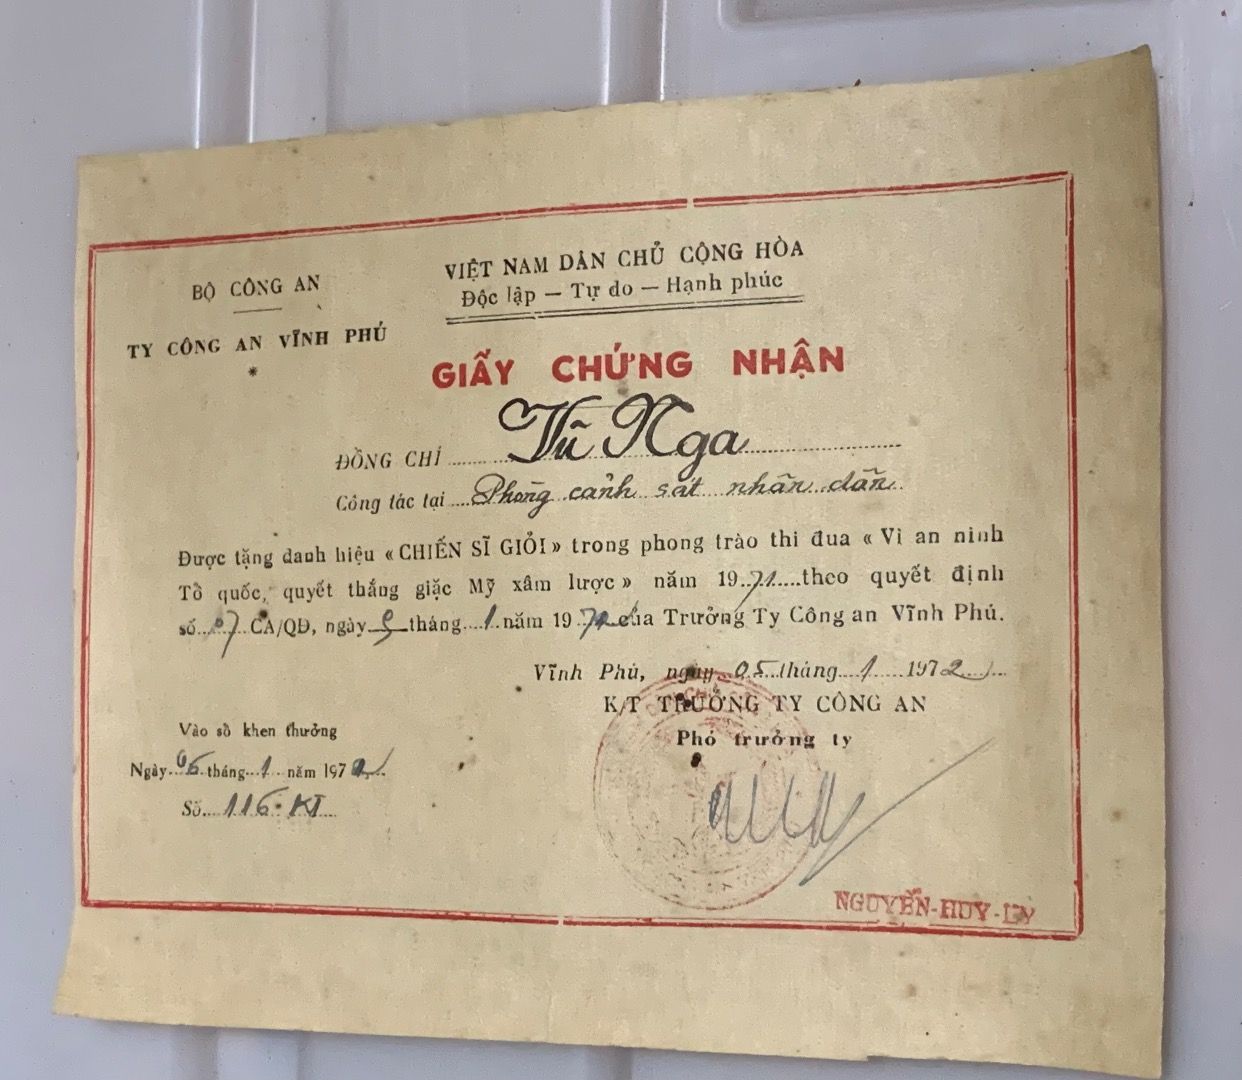 BỘ CÔNG AN
TY CÔNG AN VĨNH PHÚ
*
VIỆT NAM DÂN CHỦ CỘNG HÒA
Độc lập — Tự do — Hạnh phúc
GIẤY CHỨNG NHẬN
ĐỒNG CHÍ Vũ Nga
Công tác tại Phòng cảnh sát nhân dân
Được tặng danh hiệu «CHIẾN SĨ GIỎI» trong phong trào thi đua «Vì an ninh
Tổ quốc, quyết thắng giặc Mỹ xâm lược» năm 1971 theo quyết định
số 07 CA/QĐ, ngày 5 tháng 1 năm 1972 của Trưởng Ty Công an Vĩnh Phú.
Vĩnh Phú, ngày 05 tháng 1 1972
K/T TRƯỞNG TY CÔNG AN
Phó trưởng ty
Vào sổ khen thưởng
Ngày 06 tháng 1 năm 1972
Số 116 KT
NGUYỄN-HUY-